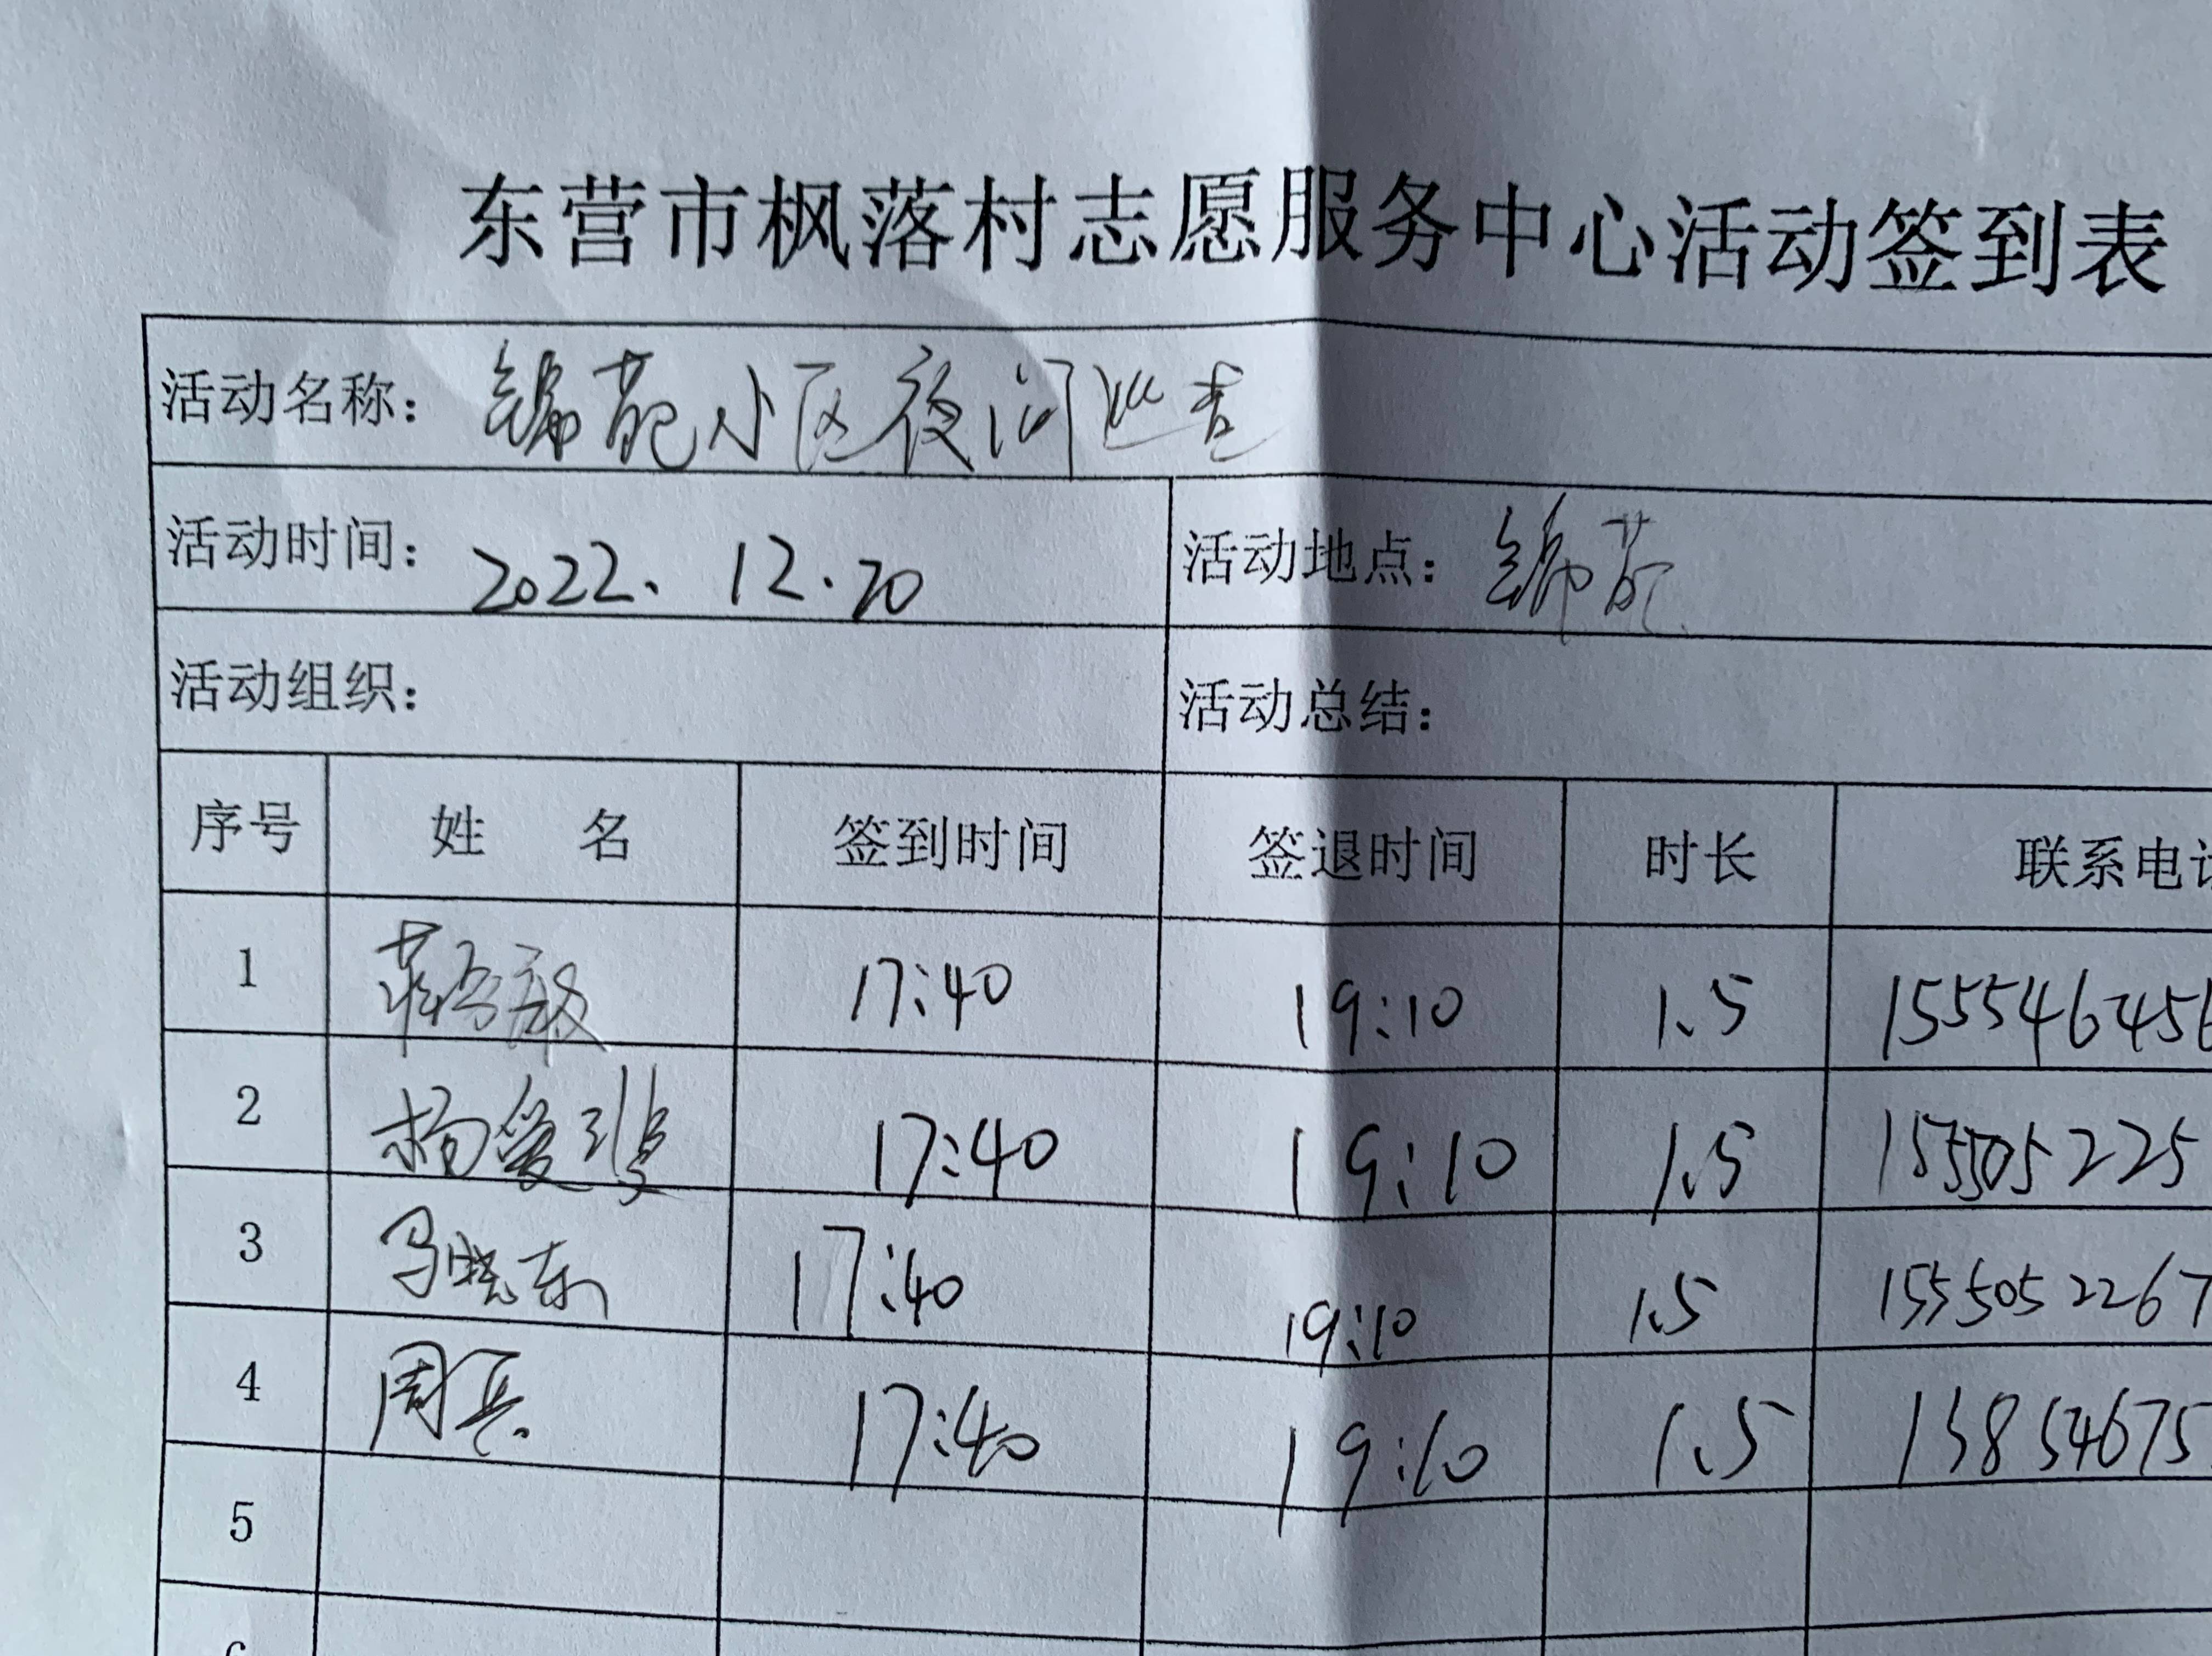 东营市枫落村志愿服务中心活动签到表
活动名称：锦苑小区夜间巡查
活动时间：2022、12.20 活动地点：锦苑
活动组织： 活动总结：
序号 姓 名 签到时间 签退时间 时长 联系电
1 17:40 19:10 1.5 155546456
2 杨爱 17:40 19:10 1.5 155505225
3 马晓东 17:40 19:10 1.5 1555052267
4 周兵 17:40 19:10 1.5 13854675
5